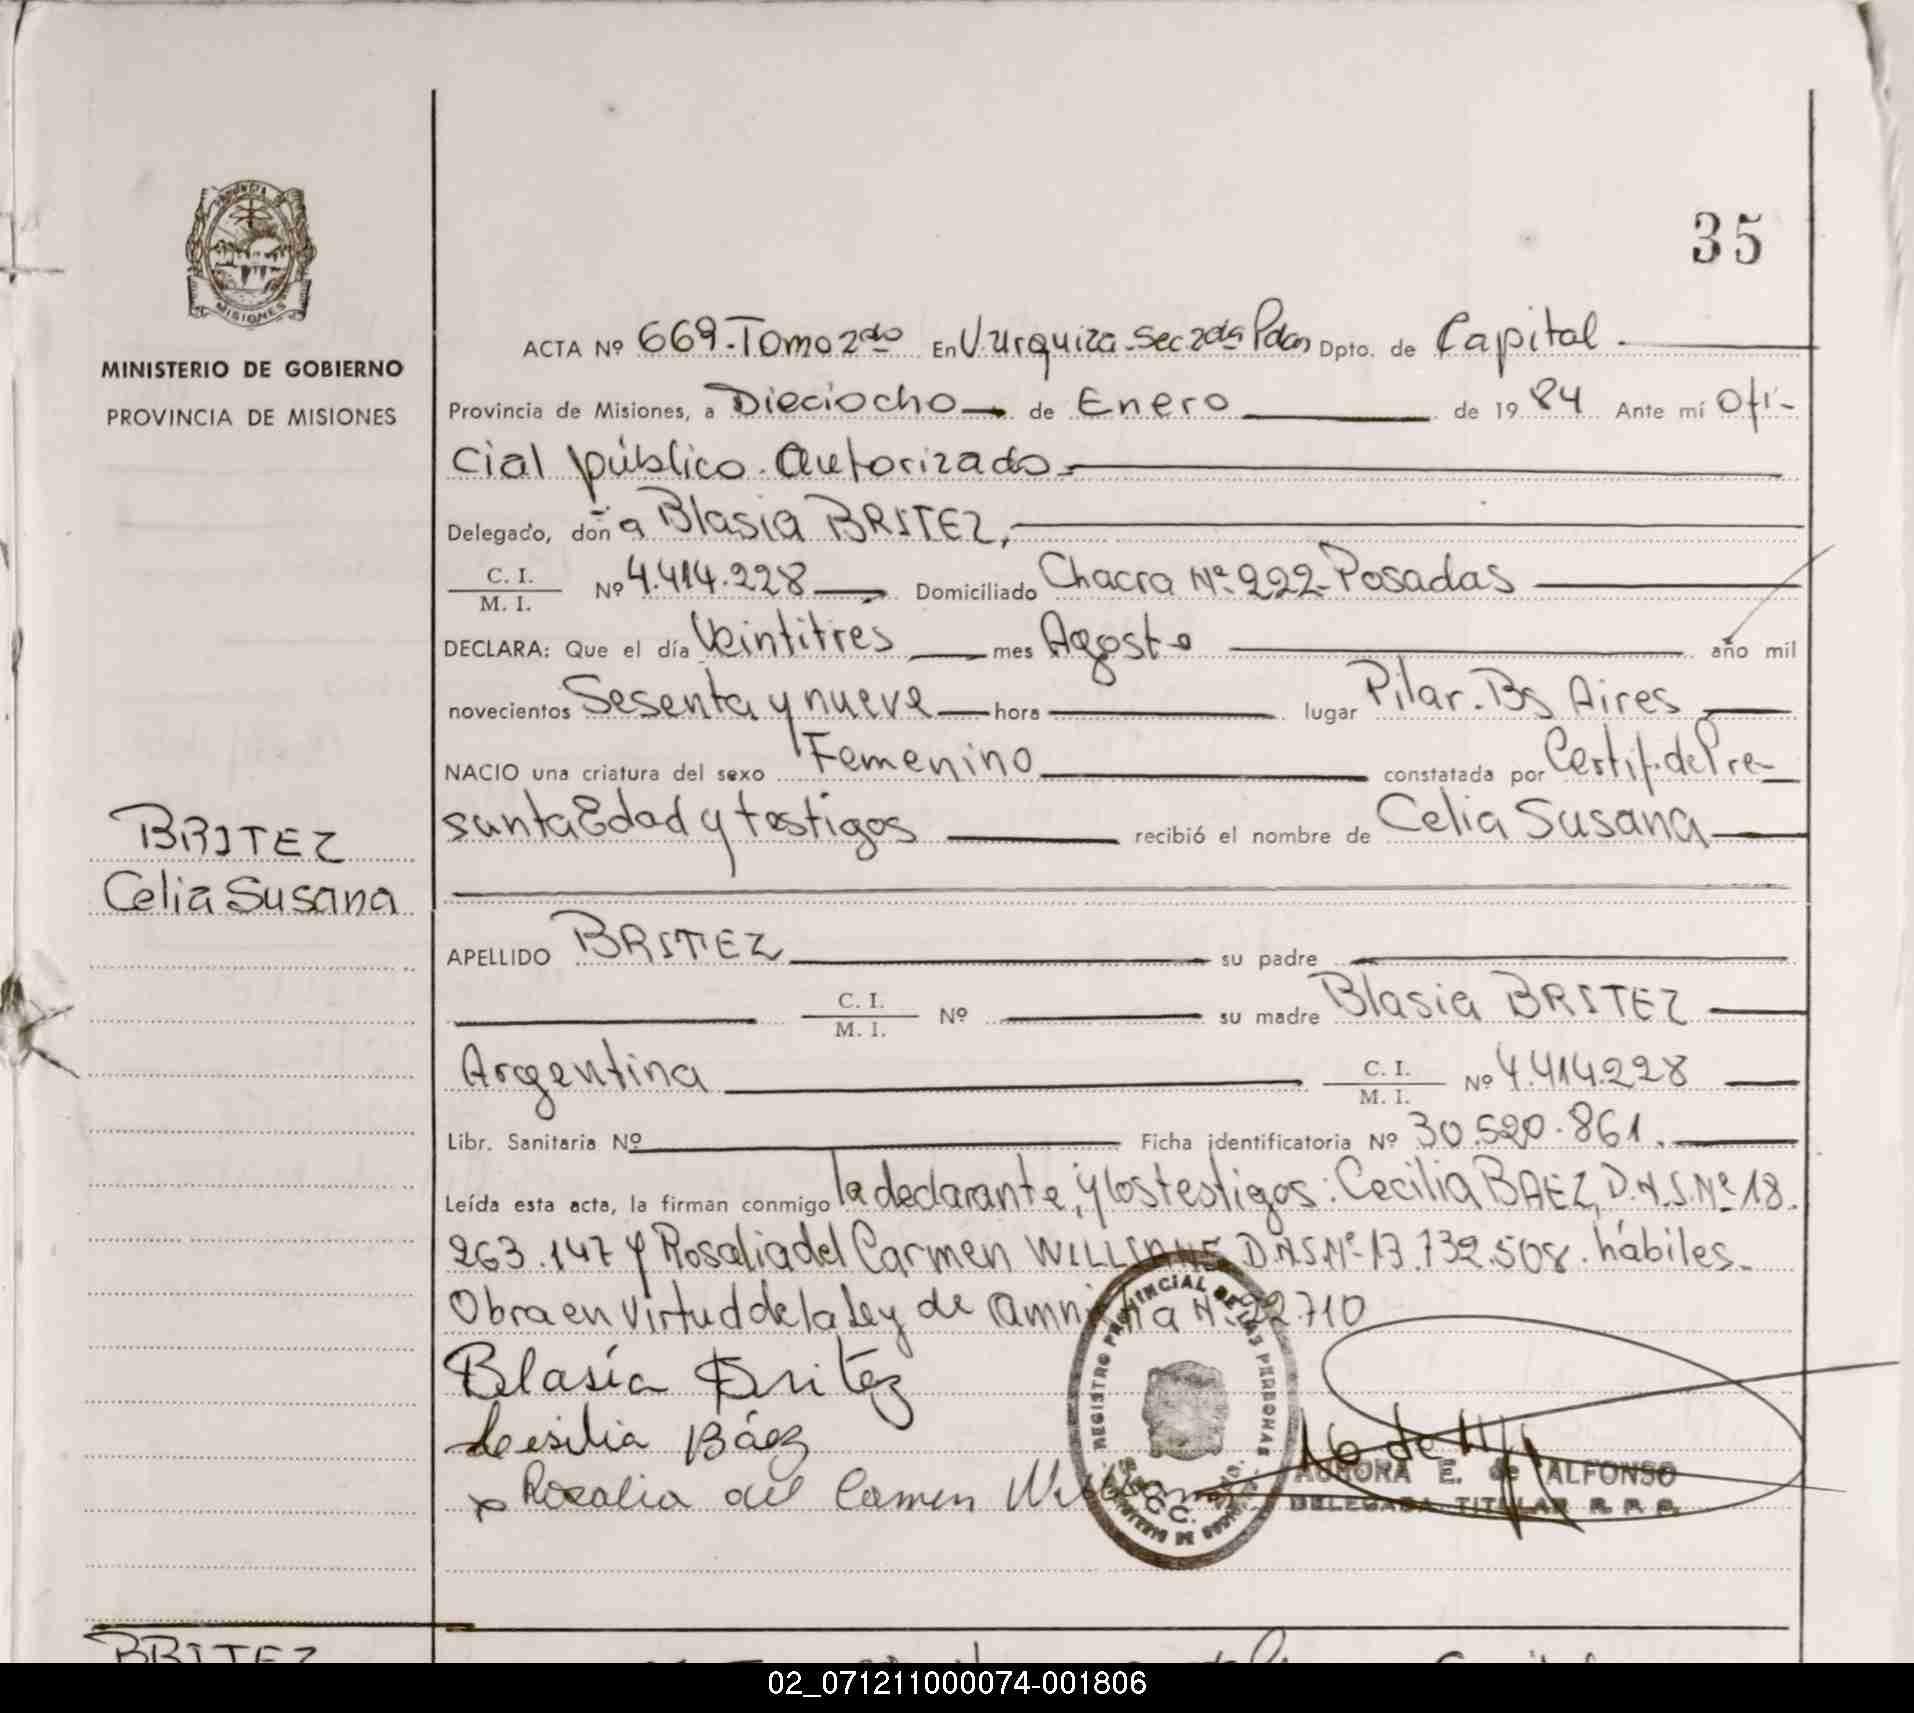 35
PROVINCIA DE
MISIONES
MINISTERIO DE GOBIERNO
PROVINCIA DE MISIONES
ACTA Nº 669.-Tomo 2do En V. Urquiza-Sec 2da Pdas Dpto. de Capital.
Provincia de Misiones, a Dieciocho de Enero de 1984 Ante mí Ofi-
cial público. Autorizado.
Delegado, doña Blasia BRITEZ,
C. I.
M. I.
Nº 4.414.228 Domiciliado Chacra Nº 222-Posadas
DECLARA: Que el día Veintitres mes Agosto año mil
novecientos Sesenta y nueve hora lugar Pilar. Bs Aires
NACIO una criatura del sexo Femenino constatada por Certif. de Pre-
sunta Edad y testigos recibió el nombre de Celia Susana
BRITEZ
Celia Susana
APELLIDO BRITEZ su padre
C. I.
M. I.
Nº su madre Blasia BRITEZ
Argentina C. I.
M. I.
Nº 4.414.228
Libr. Sanitaria Nº Ficha identificatoria Nº 30.520.861.
Leída esta acta, la firman conmigo la declarante, y los testigos: Cecilia BAEZ, D.N.I. Nº 18.
263.147 y Rosalia del Carmen WILLIAMS D.N.I Nº 13.732.508. hábiles.
Obra en virtud de la Ley de Amnistia N. 22.710
Blasía Britez
Cesilia Báez
Rosalia del Carmen Williams
REGISTRO PROVINCIAL DE LAS PERSONAS
MINISTERIO DE GOBIERNO
AURORA E. de ALFONSO
DELEGADA TITULAR R. P. P.
BRITEZ
02_071211000074-001806